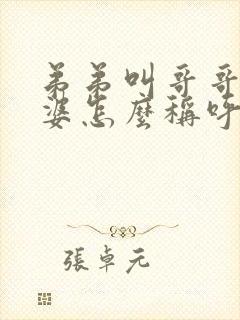 弟弟叫哥哥
婆怎麼稱呼
張卓元